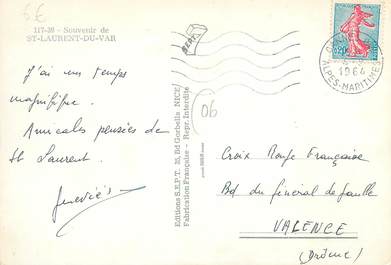 6€
117-39 - Souvenir de
ST-LAURENT-DU-VAR
J'ai un temps
magnifique.
Amicales pensées de
St Laurent.
Editions S.E.P.T. 35, Bd Gorbella NICE
Fabrication Française - Repr. Interdite
06
SEPT
1964
ALPES-MARITIMES
0,20
Croix Rouge Française
Bd du général de gaulle
VALENCE
(Drôme)